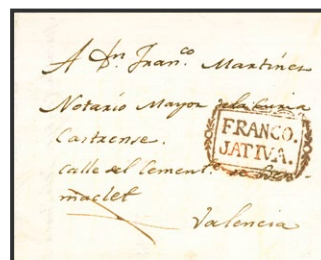 A Dn. Franco. Martinez
Notario Mayor de la Curia
Castrense.
FRANCO.
JATIVA.
calle del
maclet
Valencia